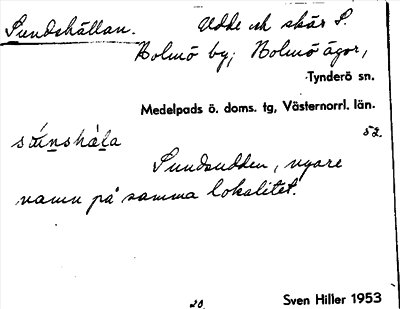 Sundshällan. Udde och skär S.
Holmö by; Holmö ägor,
Tynderö sn.
Medelpads ö. doms. tg, Västernorrl. län.
52.
Sundsudden, nyare
namn på samma lokalitet.
20. Sven Hiller 1953